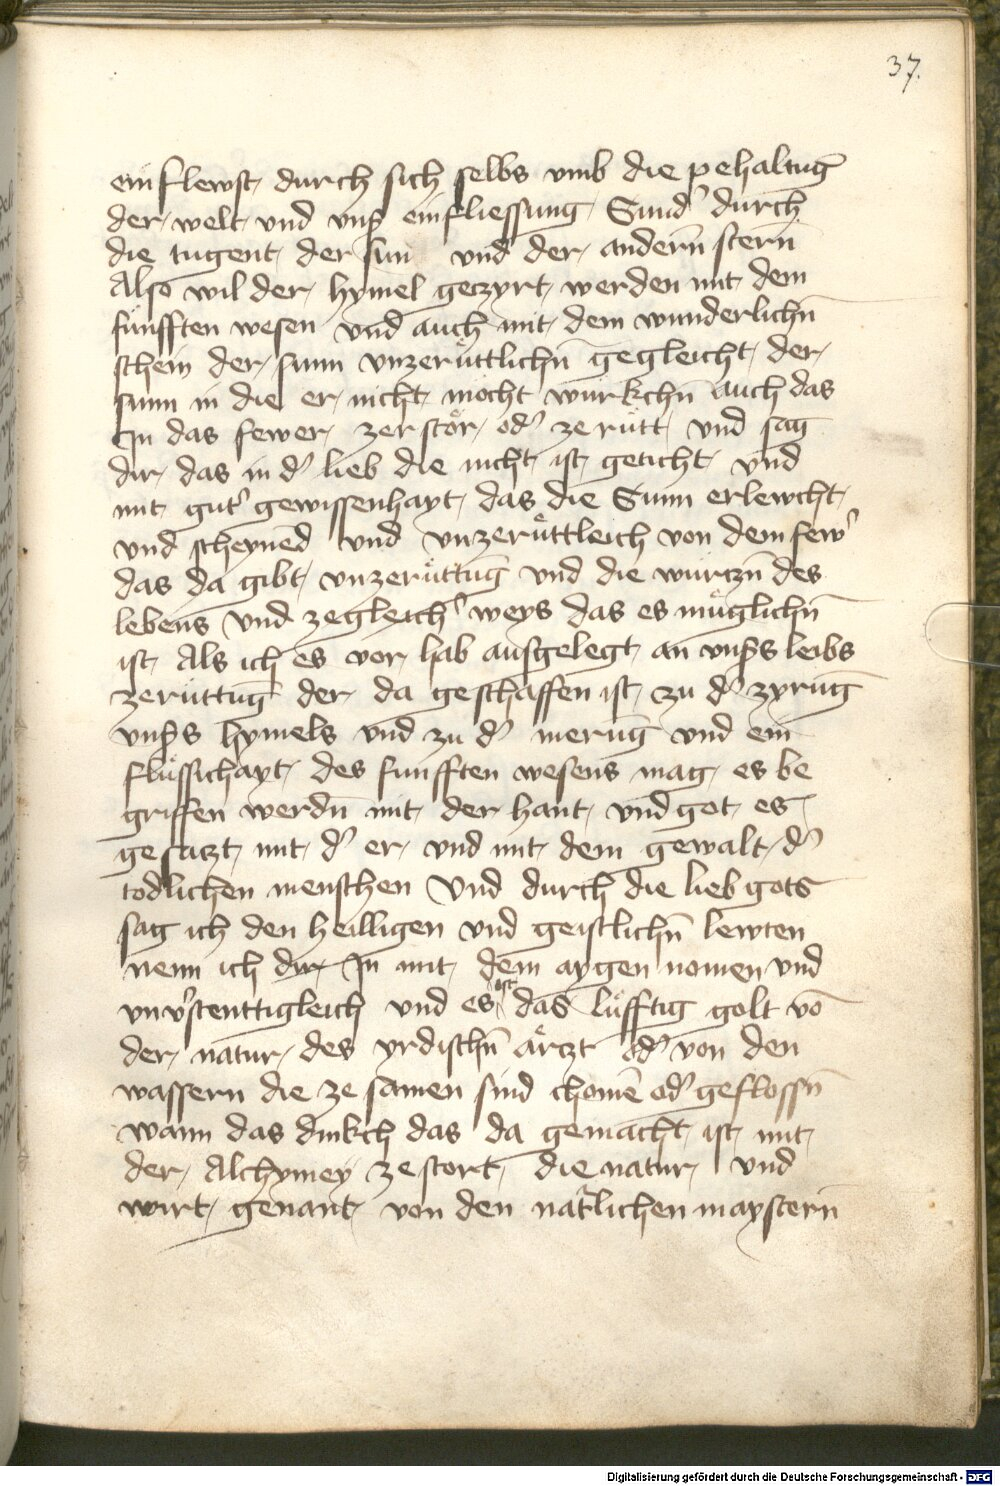 37.
einflewst durch sich selbs vmb die pehaltūg
der welt vnd vnß einfliessung Sund' durch
die tugent der sun vnd der andern̄ stern̄
Also wil der hymel geczyrt werden mit dem
funfften wesen vnd auch mit dem wunderlichn̄
schein der sunn vnzerüttlichn̄ gegleicht der
sunn in die er nicht möcht würkchn̄ auch das
In das fewer zerstör od' ze rütt vnd sag
dir das in d' lieb die nicht ist geticht vnd
mit gut' gewissenhayt das die Sunn erlewcht
vnd scheynēd vnd vnzerüttleich von dem few'
das da gibt vnzerüttūg vnd die wurczn̄ des
lebens vnd zegleich' weys das es müglichn̄
ist Als ich es vor hab ausgelegt an vnßs leibs
zerüttūg der da geschaffen ist zu d' zyrūg
vnßs hymels vnd zu d' merūg vnd ein
flüssichayt des funfften wesens mag es be
griffen werdn̄ mit der hant vnd got es
gesatzt mit d' er vnd mit dem gewalt d'
todlichen menschen Vnd durch die lieb gots
sag ich den heilligen vnd geistlichn̄ lewten
nenn ich dir In mit dem aygen nomen vnd
vnv'stenttigleich vnd es ist das lüfftig golt vō
der natur des yrdischn̄ ärczt od' von den
wassern die ze samen sind chomē od' geflossn̄
wann das dinkch das da gemacht ist mit
der Alchymey ze stort die natur vnd
wirt genant von den natlichen maystern̄
Digitalisierung gefördert durch die Deutsche Forschungsgemeinschaft - DFG